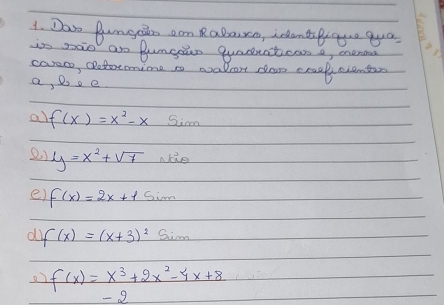 1. Das funções em Rabaixo, identifique qua-
is são as funções quadráticas e, nesse
caso, determine o valor dos coeficientes
a, b e c
a) f(x) = x² - x Sim
b) y = x² + √7 não
c) f(x) = 2x + 1 Sim
d) f(x) = (x+3)² Sim
f(x) = x³ + 2x² - 4x + 8
- 2